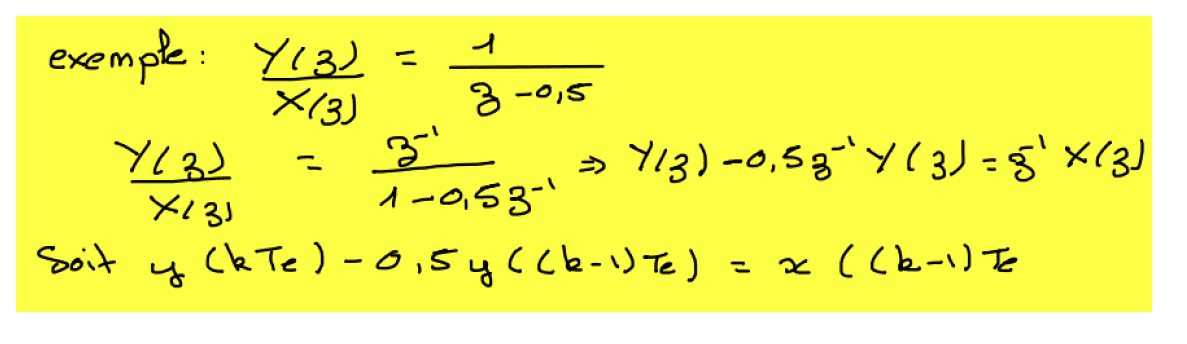 exemple : Y(z)/X(z) = 1/(z - 0,5)
Y(z)/X(z) = z⁻¹/(1 - 0,5z⁻¹) ⇒ Y(z) - 0,5z⁻¹ Y(z) = z⁻¹ X(z)
Soit y (kTe) - 0,5 y ((k-1) Te) = x ((k-1) Te